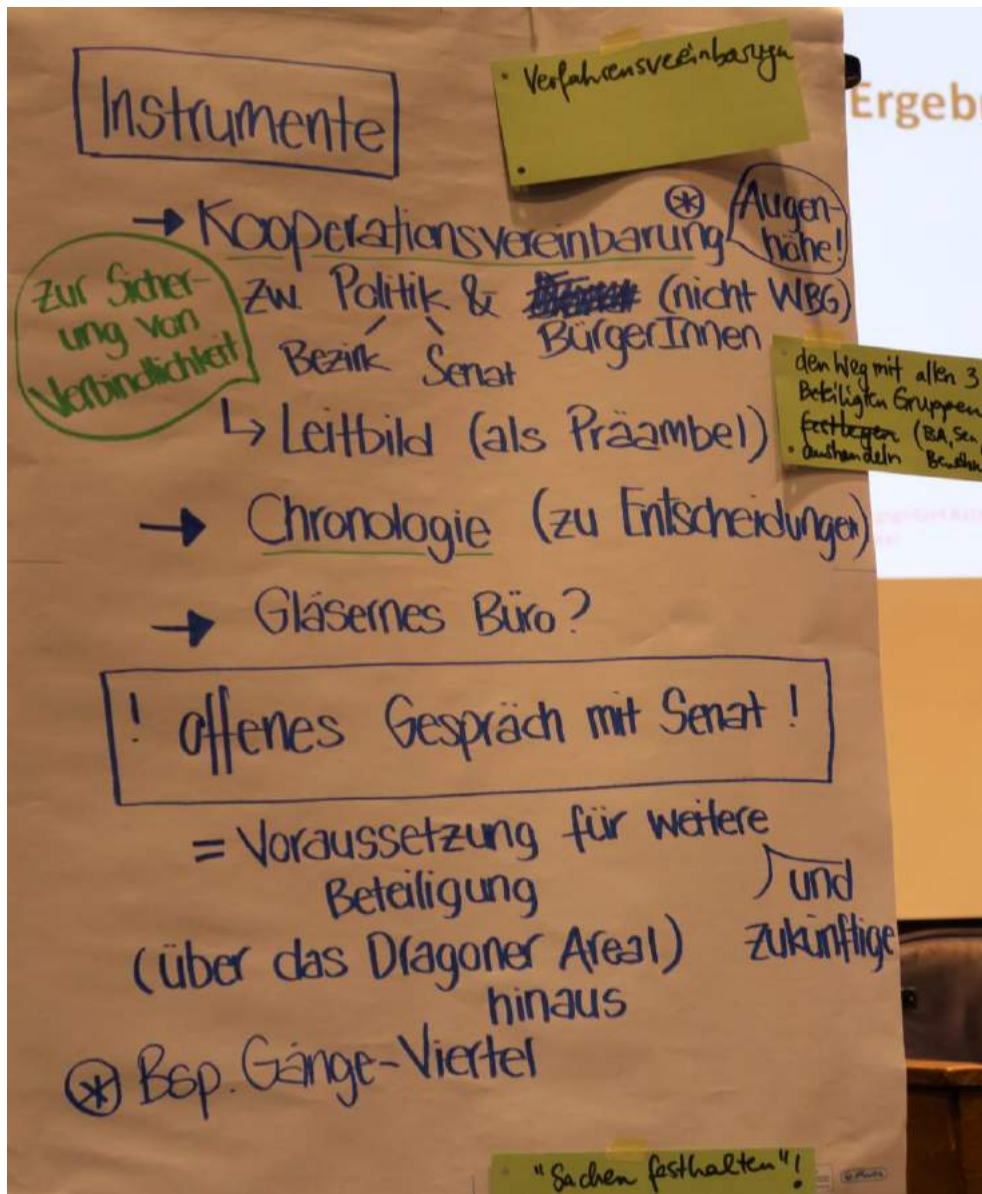 Instrumente
• Verfahrensvereinbarungen
Ergeb
→ Kooperationsvereinbarung ⊛
Augen-
höhe!
zur Sicher-
ung von
Verbindlichkeit
zw. Politik & (nicht WBG)
BürgerInnen
Bezirk Senat
den Weg mit allen 3
Beteiligten Gruppen
festlegen (BA, Sen
• aushandeln
↳ Leitbild (als Präambel)
→ Chronologie (zu Entscheidungen)
→ Gläsernes Büro?
! offenes Gespräch mit Senat !
= Voraussetzung für weitere
Beteiligung
und
zukünftige
(über das Dragoner Areal)
hinaus
⊛ Bsp. Gänge-Viertel
"Sachen festhalten"!